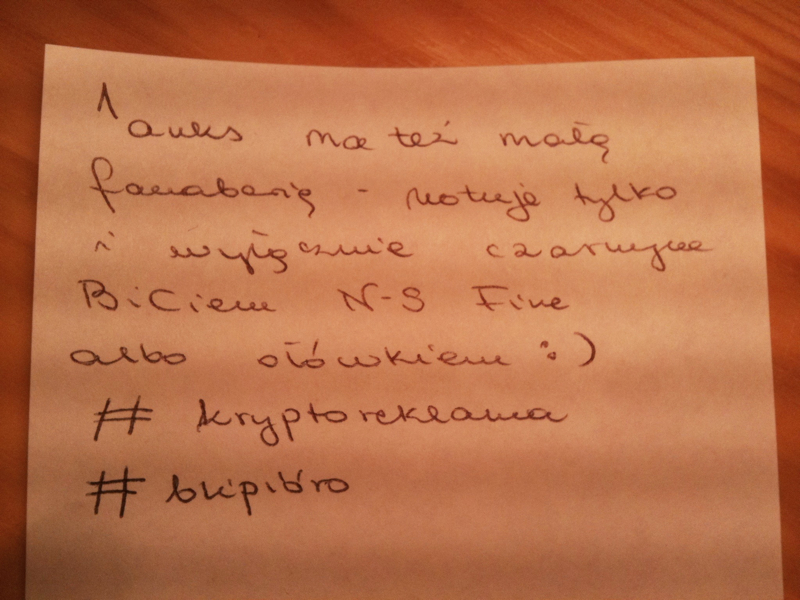 1auks ma też małą
fanaberię - notuje tylko
i wyłącznie czarnym
BiCiem N-S Fine
albo ołówkiem :)
# kryptoreklama
# bkpibro